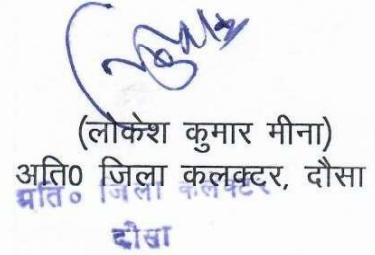 (लोकेश कुमार मीना)
अति0 जिला कलक्टर, दौसा
अति० जिला कलक्टर
दौसा